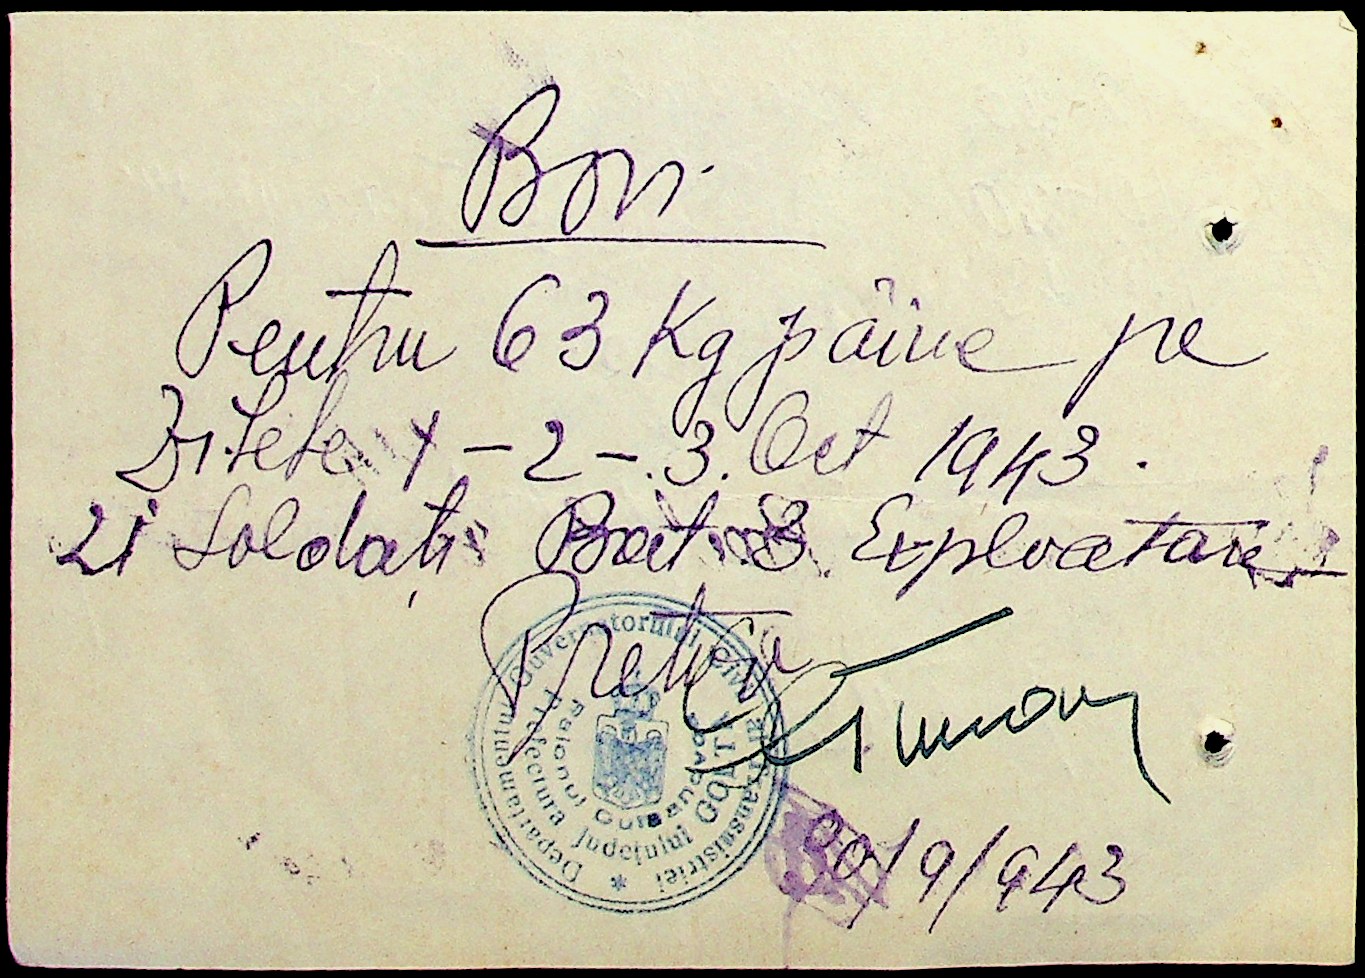 Bon
Pentru 63 Kg pâine pe
Zilele 1 - 2 - 3. Oct 1943.
21 Soldați Bat. 3. Exploatare
Pretor
30/9/943
Departamentul Guvernatorului Civil al Transnistriei
Prefectura Județului GOLTA
Raionul